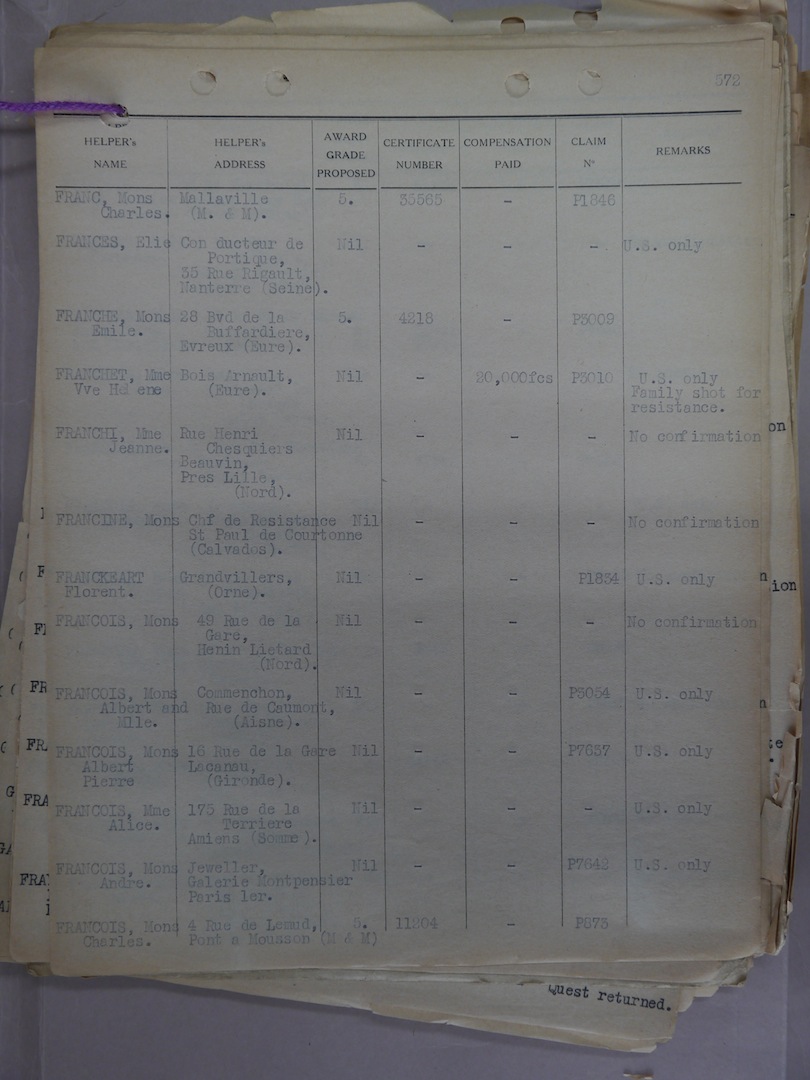 572
HELPER's NAME HELPER's ADDRESS AWARD GRADE PROPOSED CERTIFICATE NUMBER COMPENSATION PAID CLAIM No REMARKS
FRANC, Mons Mallaville 5. 35565 - P1846
Charles. (M. & M).
FRANCES, Elie Con ducteur de Nil - - - . U.S. only
Portique,
35 Rue Rigault,
Nanterre (Seine).
FRANCHE, Mons 28 Bvd de la 5. 4218 - P3009
Emile. Buffardiere,
Evreux (Eure).
FRANCHET, Mme Bois Arnault, Nil - 20,000fcs P3010 U.S. only
Vve Helene (Eure). Family shot for
resistance.
FRANCHI, Mme Rue Henri Nil - - - No confirmation
Jeanne. Chesquiers
Beauvin,
Pres Lille,
(Nord).
FRANCINE, Mons Chf de Resistance Nil - - - No confirmation
St Paul de Courtonne
(Calvados).
FRANCKEART Grandvillers, Nil - - P1834 U.S. only
Florent. (Orne).
FRANCOIS, Mons 49 Rue de la Nil - - - No confirmation
Gare,
Henin Lietard
(Nord).
FRANCOIS, Mons Commenchon, Nil - - P3054 U.S. only
Albert and Rue de Caumont,
Mlle. (Aisne).
FRANCOIS, Mons 16 Rue de la Gare Nil - - P7637 U.S. only
Albert Lacanau,
Pierre (Gironde).
FRANCOIS, Mme 175 Rue de la Nil - - - U.S. only
Alice. Terriere
Amiens (Somme).
FRANCOIS, Mons Jeweller, Nil - - P7642 U.S. only
Andre. Galerie Montpensier
Paris 1er.
FRANCOIS, Mons 4 Rue de Lemud, 5. 11204 - P875
Charles. Pont a Mousson (M & M)
Quest returned.